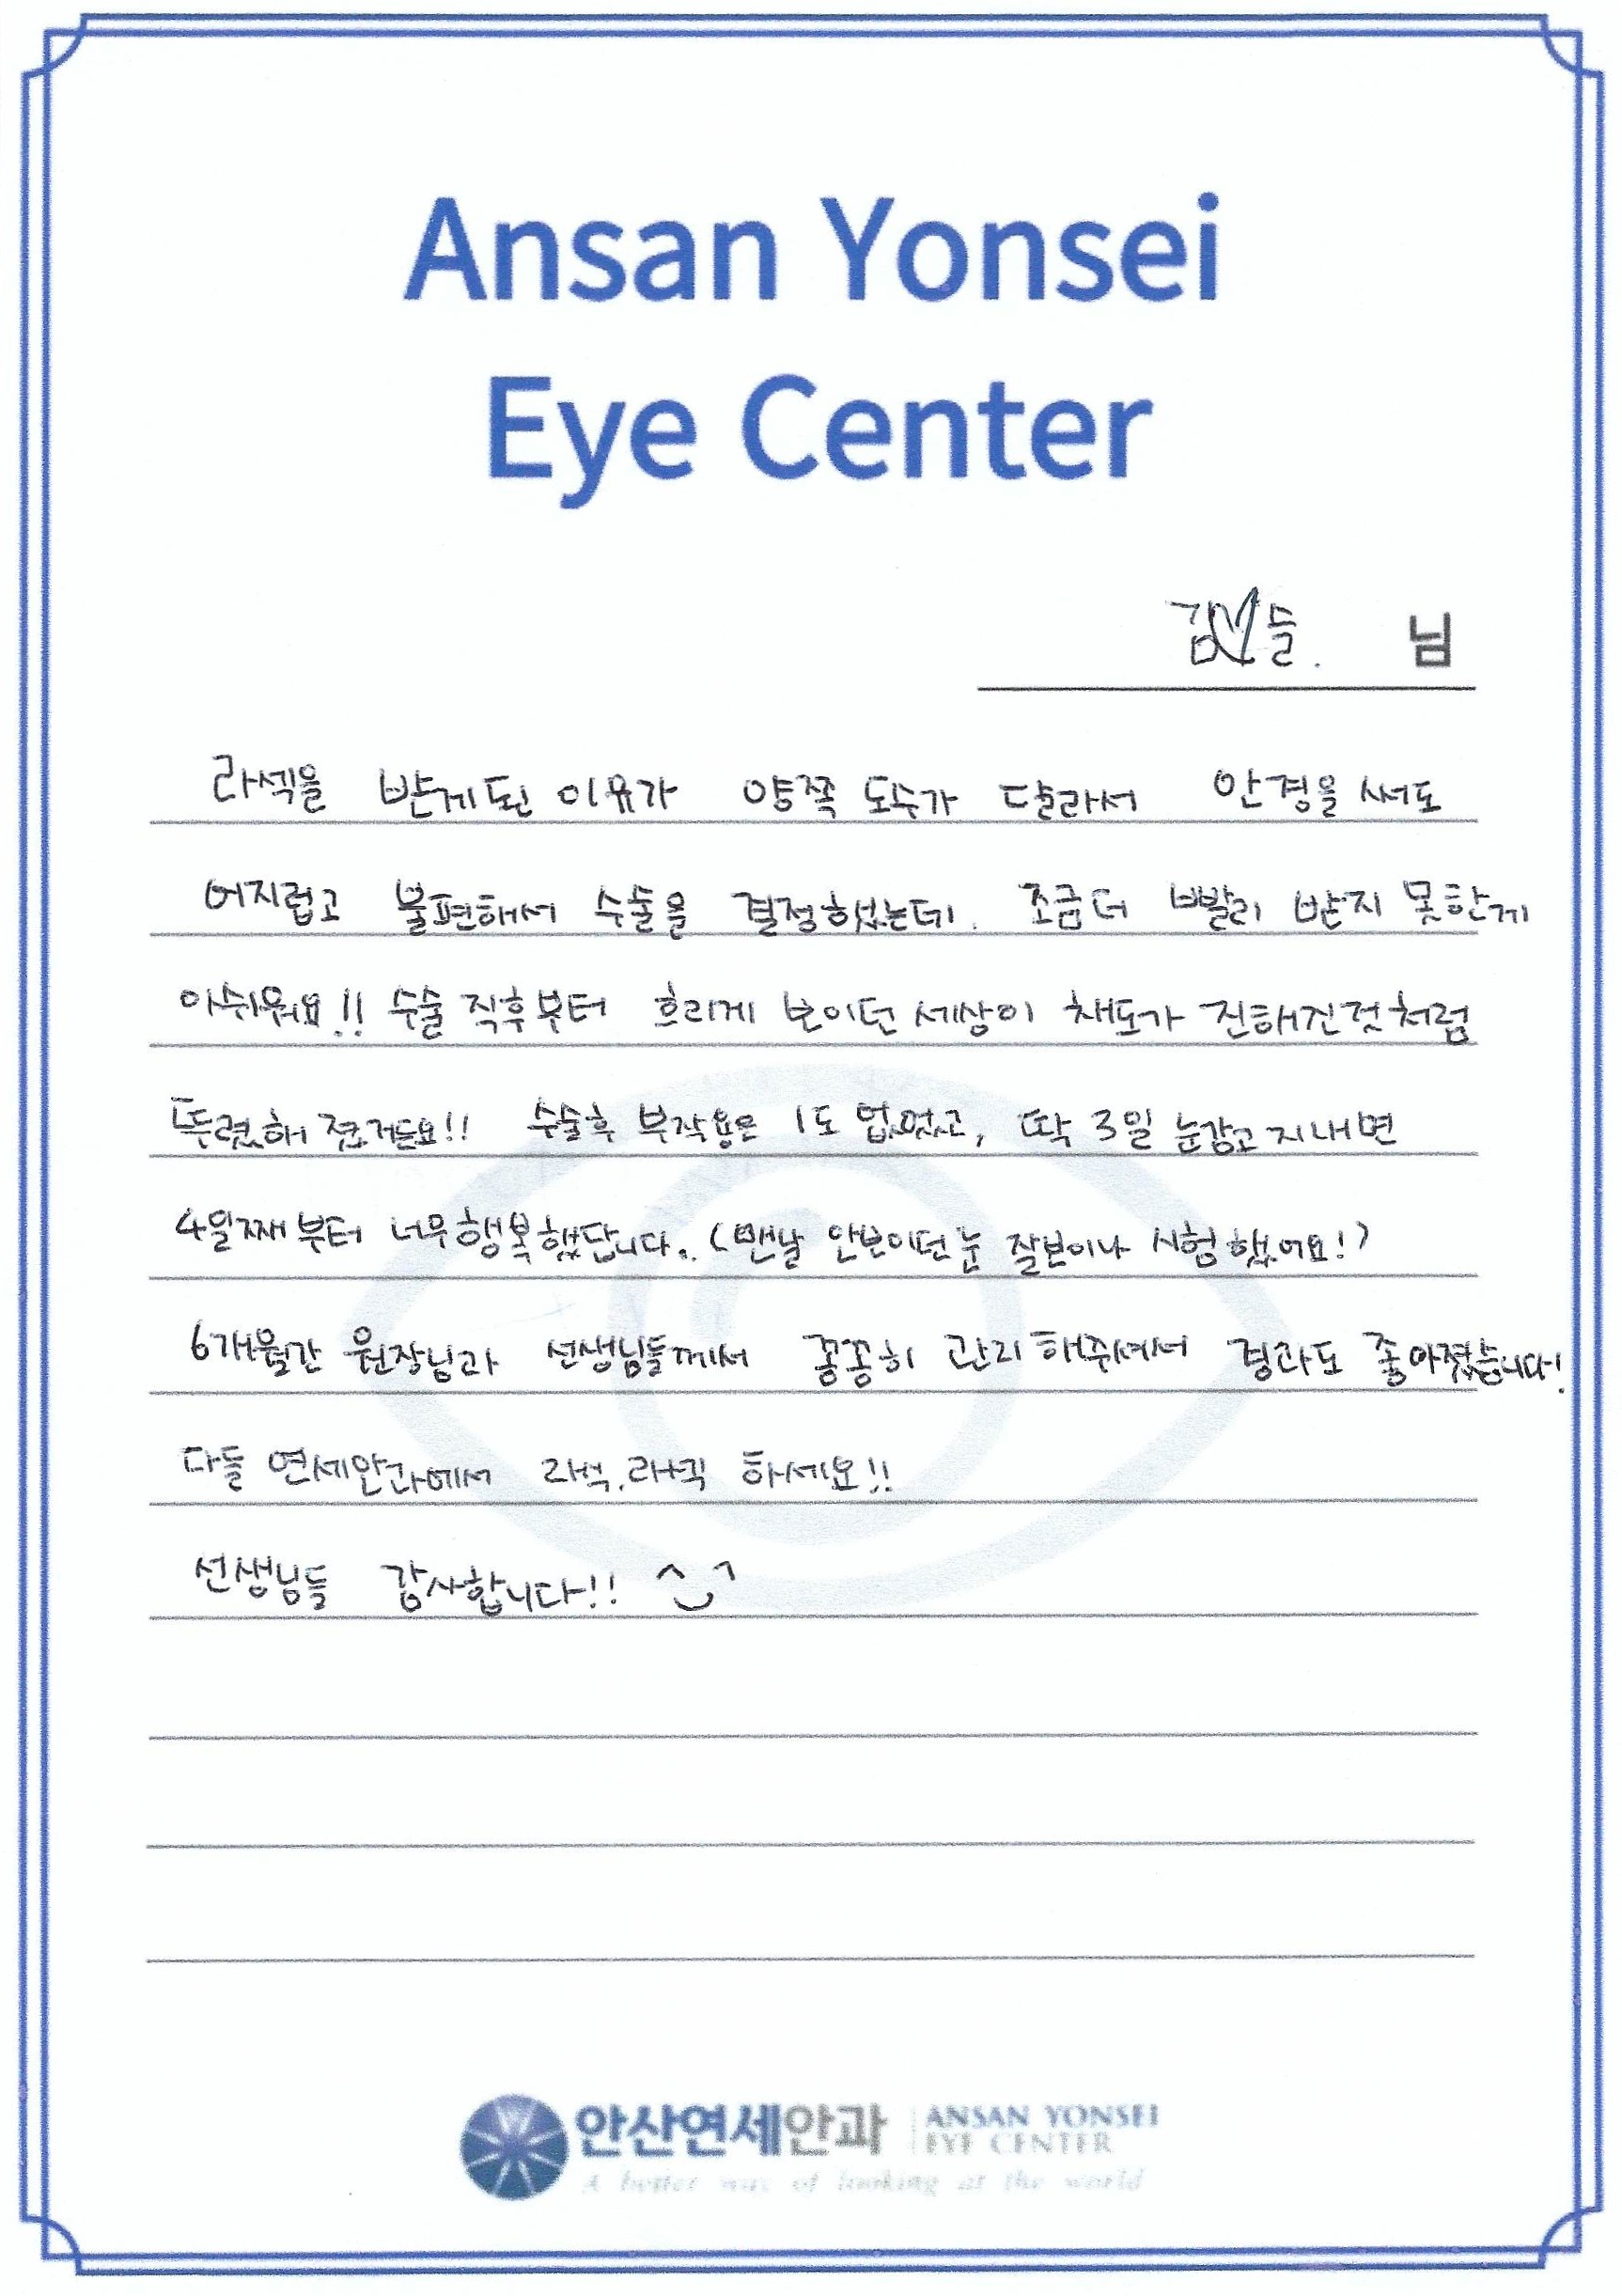 Ansan Yonsei
Eye Center
김 들. 님
라섹을 받게된 이유가 양쪽 도수가 달라서 안경을 써도
어지럽고 불편해서 수술을 결정했는데. 조금더 빨리 받지 못한게
아쉬워요!! 수술 직후부터 흐리게 보이던 세상이 채도가 진해진것처럼
뚜렷해 졌거든요!! 수술후 부작용은 1도 없었고, 딱 3일 눈감고 지내면
4일째부터 너무행복했답니다. (맨날 안보이던눈 잘보이나 시험했어요!)
6개월간 원장님과 선생님들께서 꼼꼼히 관리해주셔서 경과도 좋아졌습니다!
다들 연세안과에서 라섹.라식 하세요!!
선생님들 감사합니다!! ^‿^
안산연세안과 ANSAN YONSEI
EYE CENTER
A better way of looking at the world